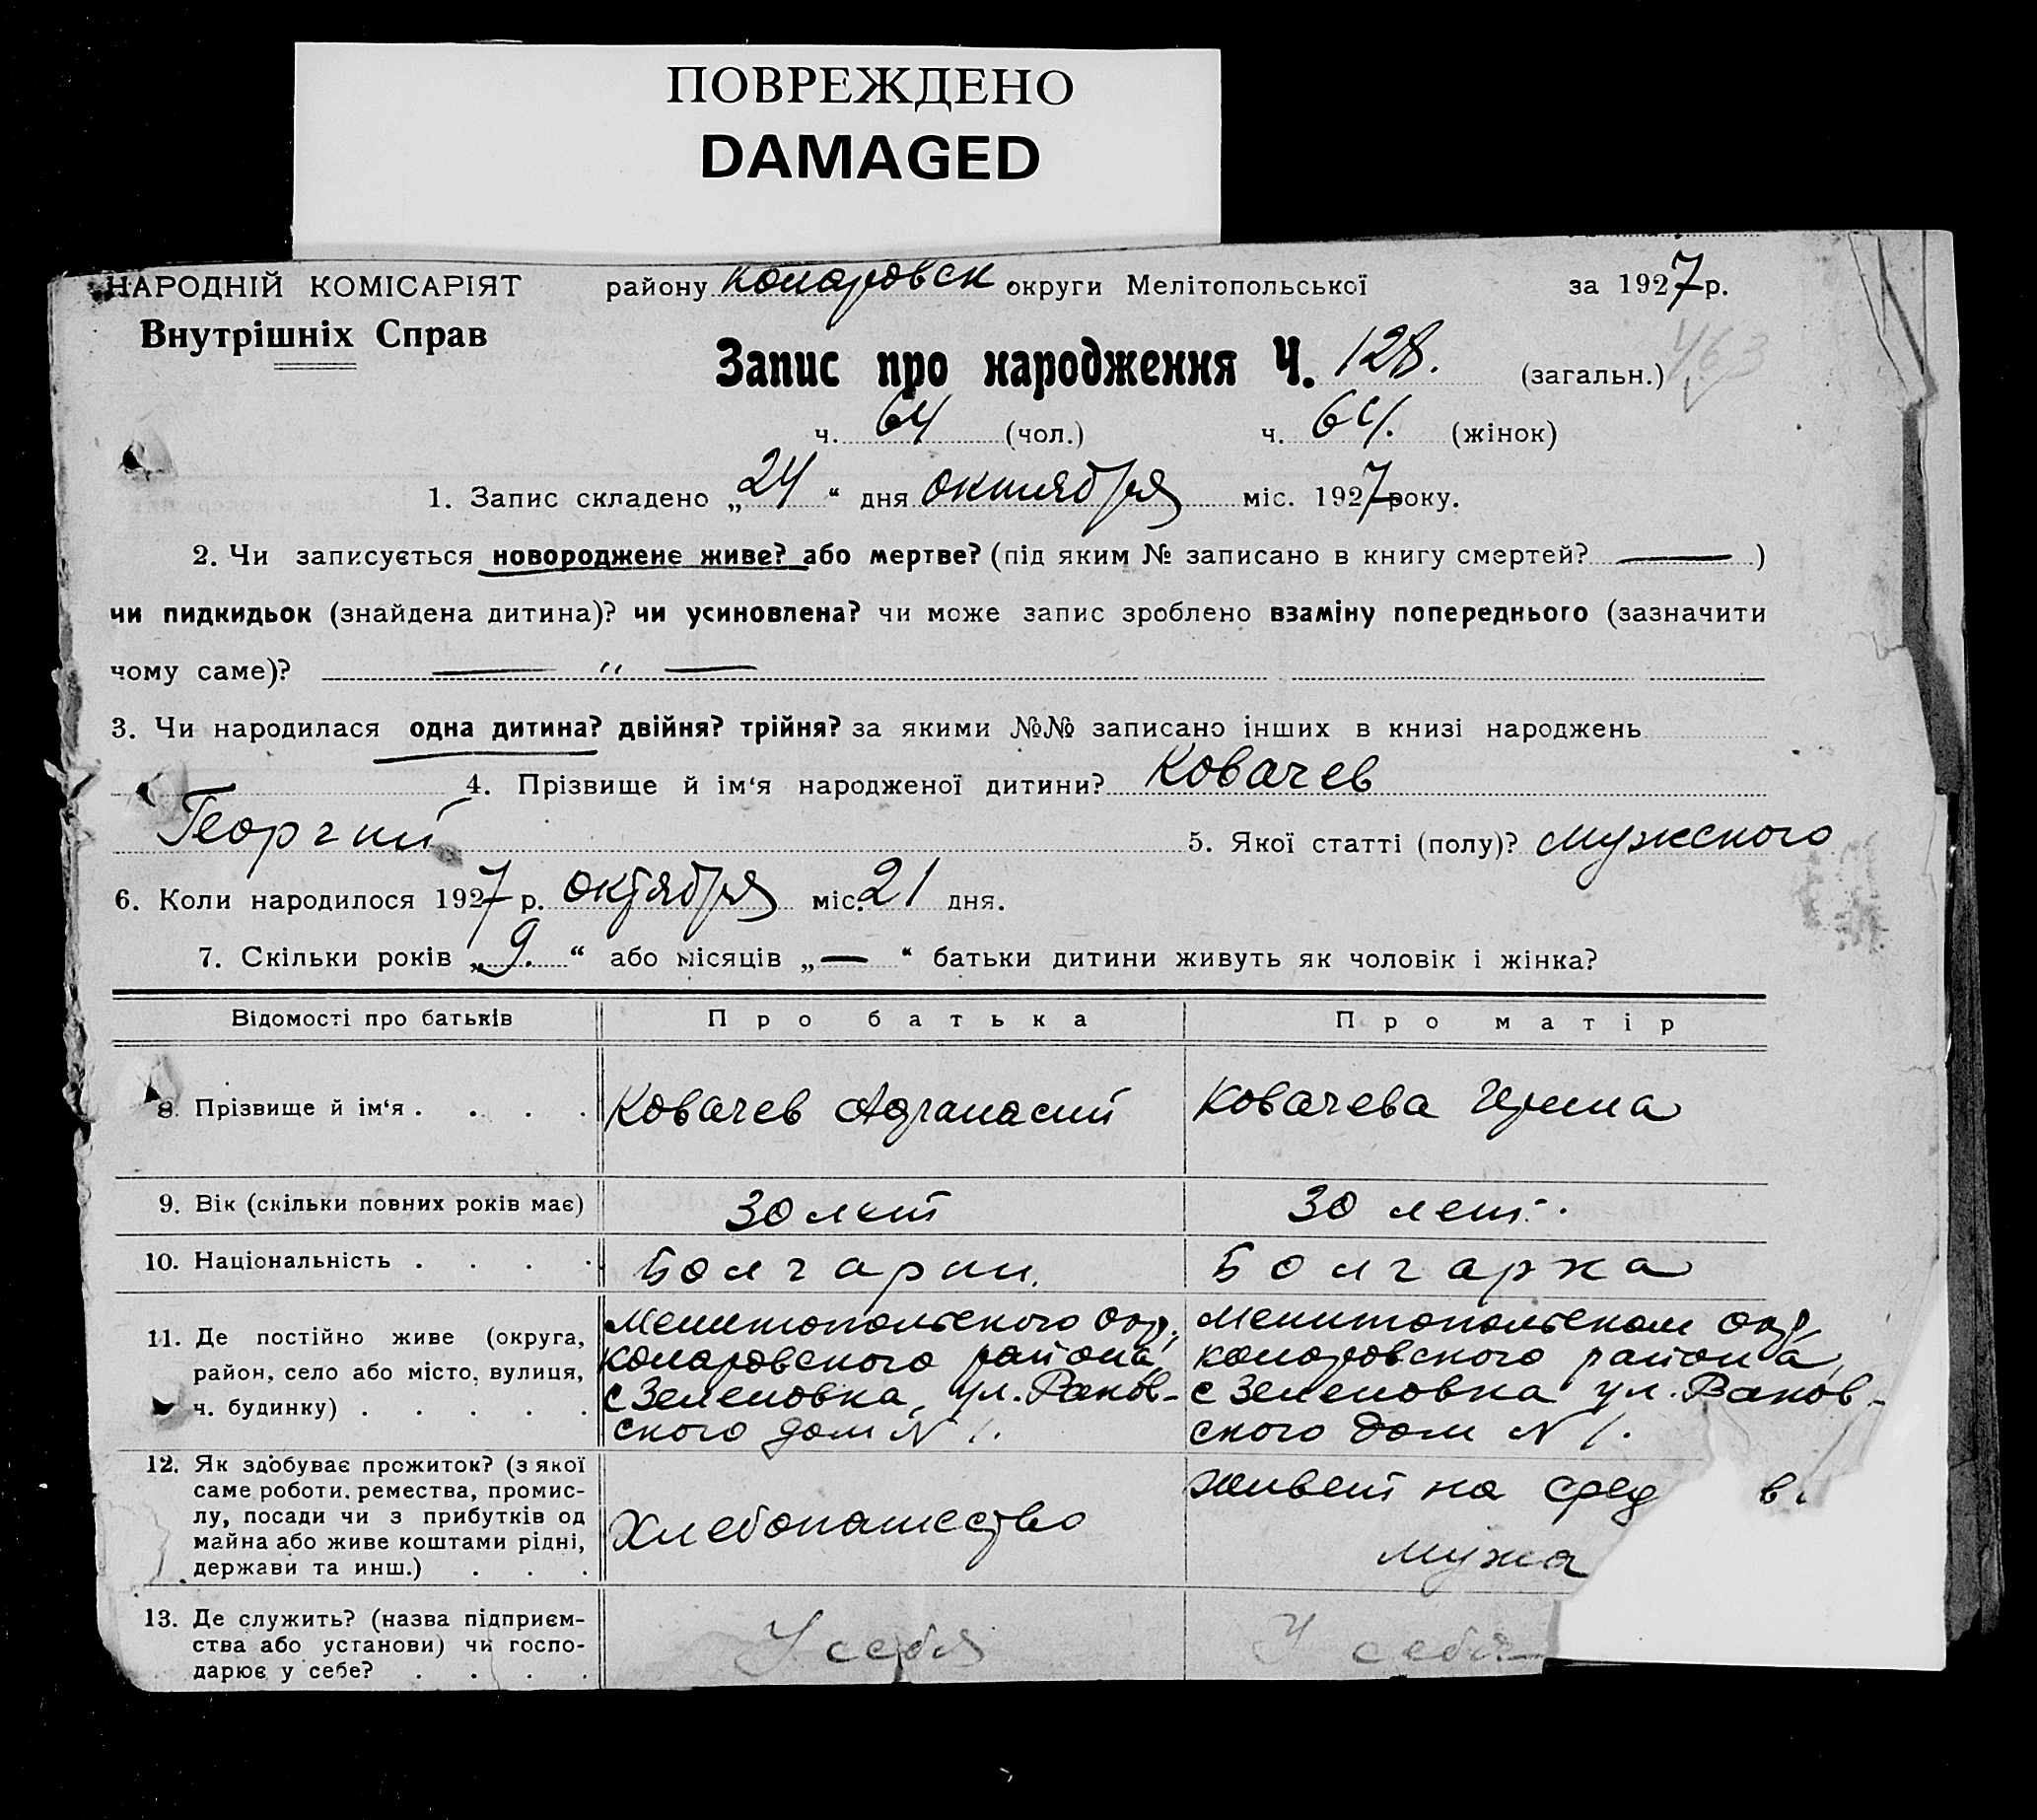 ПОВРЕЖДЕНО
DAMAGED
НАРОДНІЙ КОМІСАРІЯТ району Комаровск округи Мелітопольської за 1927 р.
Внутрішніх Справ
Запис про народження Ч. 128. (загальн.) 463
ч. 64 (чол.) ч. 64. (жінок)
1. Запис складено „24“ дня октября міс. 1927 року.
2. Чи записується новороджене живе? або мертве? (під яким № записано в книгу смертей? — )
чи пидкидьок (знайдена дитина)? чи усиновлена? чи може запис зроблено взаміну попереднього (зазначити
чому саме)? — „ —
3. Чи народилася одна дитина? двійня? трійня? за якими №№ записано інших в книзі народжень
4. Прізвище й ім‘я народженої дитини? Ковачев
Георгий 5. Якої статті (полу)? мужского
6. Коли народилося 1927 р. октября міс. 21 дня.
7. Скільки років „9.“ або місяців „—“ батьки дитини живуть як чоловік і жінка?
Відомості про батьків Про батька Про матір
8. Прізвище й ім‘я . . . . Ковачев Афанасий Ковачева Ирина
9. Вік (скільки повних років має) 30 лет 30 лет.
10. Національність . . . . Болгарин. Болгарка
11. Де постійно живе (округа, Мелитопольского окр. Мелитопольском окр.
район, село або місто, вулиця, Комаровского района, Комаровского района,
ч. будинку) . . . . . с Зеленовка, ул. Раков- с Зеленовка ул. Раков-
ского дом N 1. ского дом N 1.
12. Як здобуває прожиток? (з якої
саме роботи, ремества, промис- живет на сред в
лу, посади чи з прибутків од Хлебопашество
майна або живе коштами рідні, мужа
держави та инш.) . . .
13. Де служить? (назва підприєм-
ства або установи) чи госпо- У себя У себя
дарює у себе? . . . .